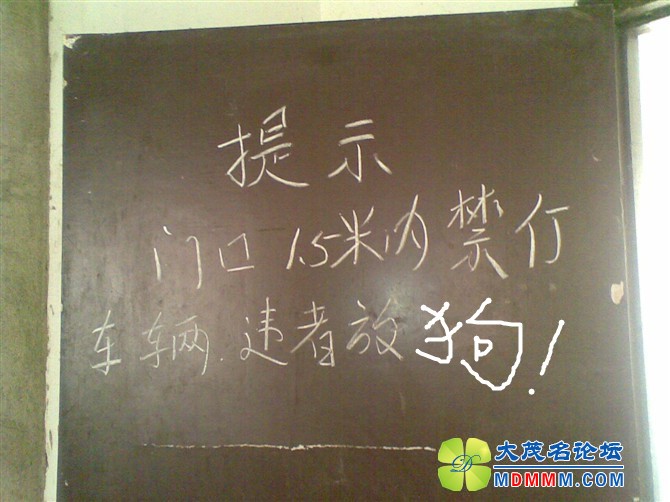 提示
门口1.5米内禁行
车辆.违者放狗!
大茂名论坛
MDMMM.COM